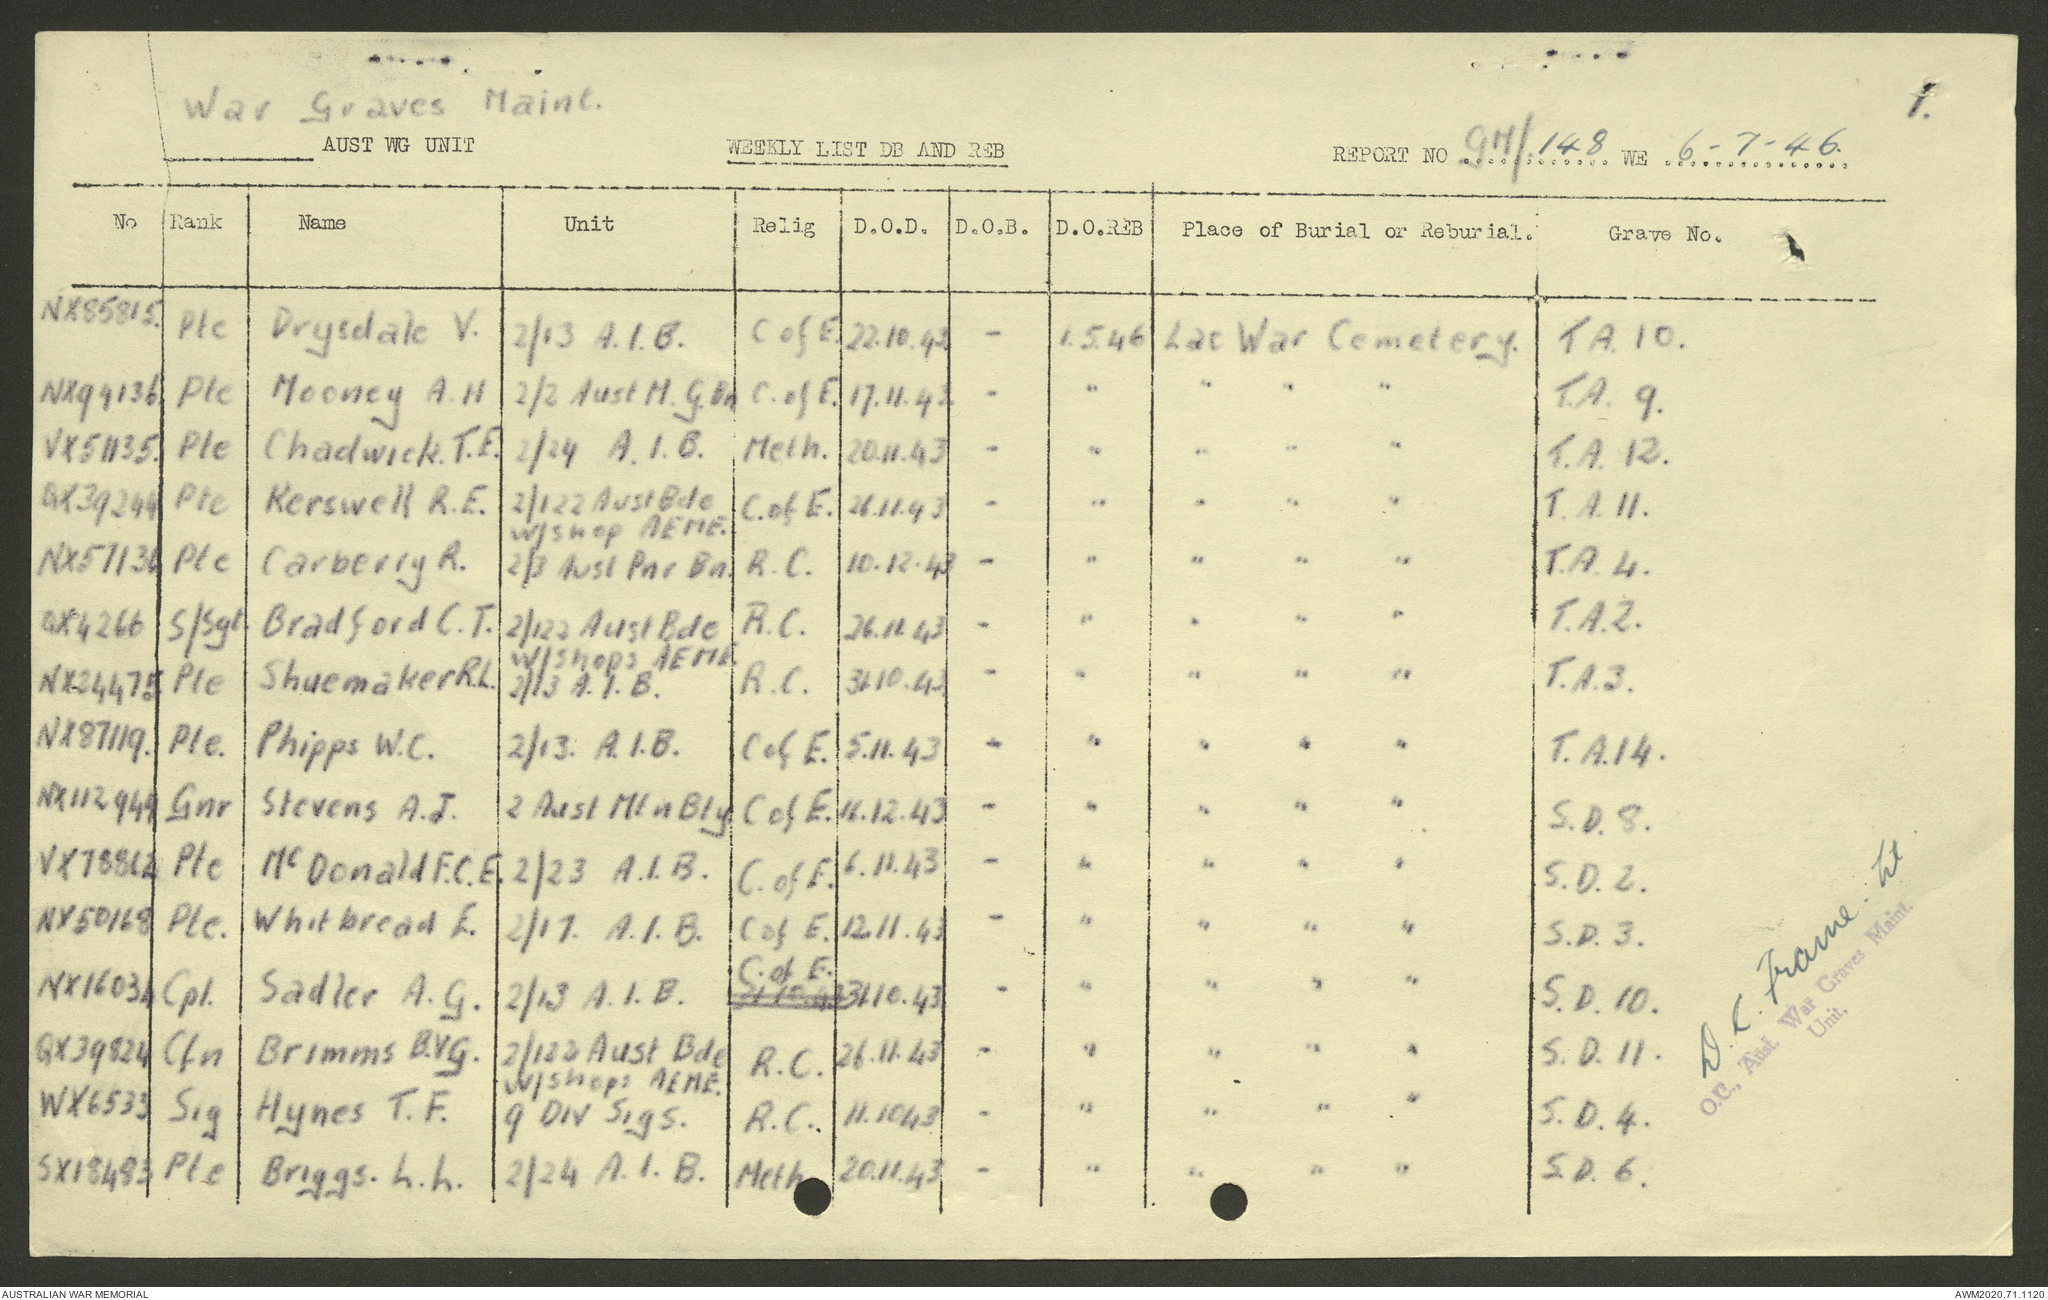 1.
War Graves Maint.
AUST WG UNIT WEEKLY LIST DB AND REB REPORT NO GM/148 WE 6-7-46.
No Rank Name Unit Relig D.O.D. D.O.B. D.O.REB Place of Burial or Reburial. Grave No.
NX85815. Pte Drysdale V. 2/13 A.I.B. C of E. 22.10.43 - 1.5.46 Lae War Cemetery. T A. 10.
NX94136 Pte Mooney A.H 2/2 Aust M.G.Bn C. of E. 17.11.43. - " " " " T.A. 9.
VX51135. Pte Chadwick. T.E. 2/24 A.I.B. Meth. 20.11.43 - " " " " T.A. 12.
QX39244 Pte Kerswell R.E. 2/122 Aust Bde C. of E. 26.11.43 - " " " " T.A. 11.
W/Shop AEME.
NX57136 Pte Carberry R. 2/3 Aust Pnr Bn. R.C. 10.12.43 - " " " " T.A. 4.
QX4266 S/Sgt. Bradford C.T. 2/122 Aust Bde R.C. 26.11.43 - " " " " T.A.2.
W/Shops AEME.
NX24475 Pte Shuemaker R.L. 2/13 A.I.B. R.C. 31.10.43 - " " " " T.A.3.
NX87119. Pte. Phipps W.C. 2/13. A.I.B. C of E. 5.11.43 - " " " " T.A.14.
NX112949 Gnr Stevens A.J. 2 Aust Mtn Bty. C of E. 11.12.43 - " " " " S.D. 8.
VX78862 Pte McDonald F.C.E. 2/23 A.I.B. C. of E. 6.11.43 - " " " " S.D. 2.
NX50168 Pte. Whitbread E. 2/17. A.I.B. C of E. 12.11.43 - " " " " S.D. 3.
C. of E.
NX16034 Cpl. Sadler A.G. 2/13 A.I.B. 31.10.43 31.10.43 - " " " " S.D. 10.
QX39824 Cfn Brimms B.V.G. 2/122 Aust Bde R.C. 26.11.43 - " " " " S.D. 11.
W/Shops AEME.
WX6533 Sig Hynes T.F. 9 Div Sigs. R.C. 11.10.43 - " " " " S.D. 4.
SX18483 Pte Briggs. L.L. 2/24 A.I.B. Meth 20.11.43 - " " " " S.D. 6.
D. C. Frame. Lt
O.C., Aust. War Graves Maint.
Unit.
AUSTRALIAN WAR MEMORIAL AWM2020.71.1120